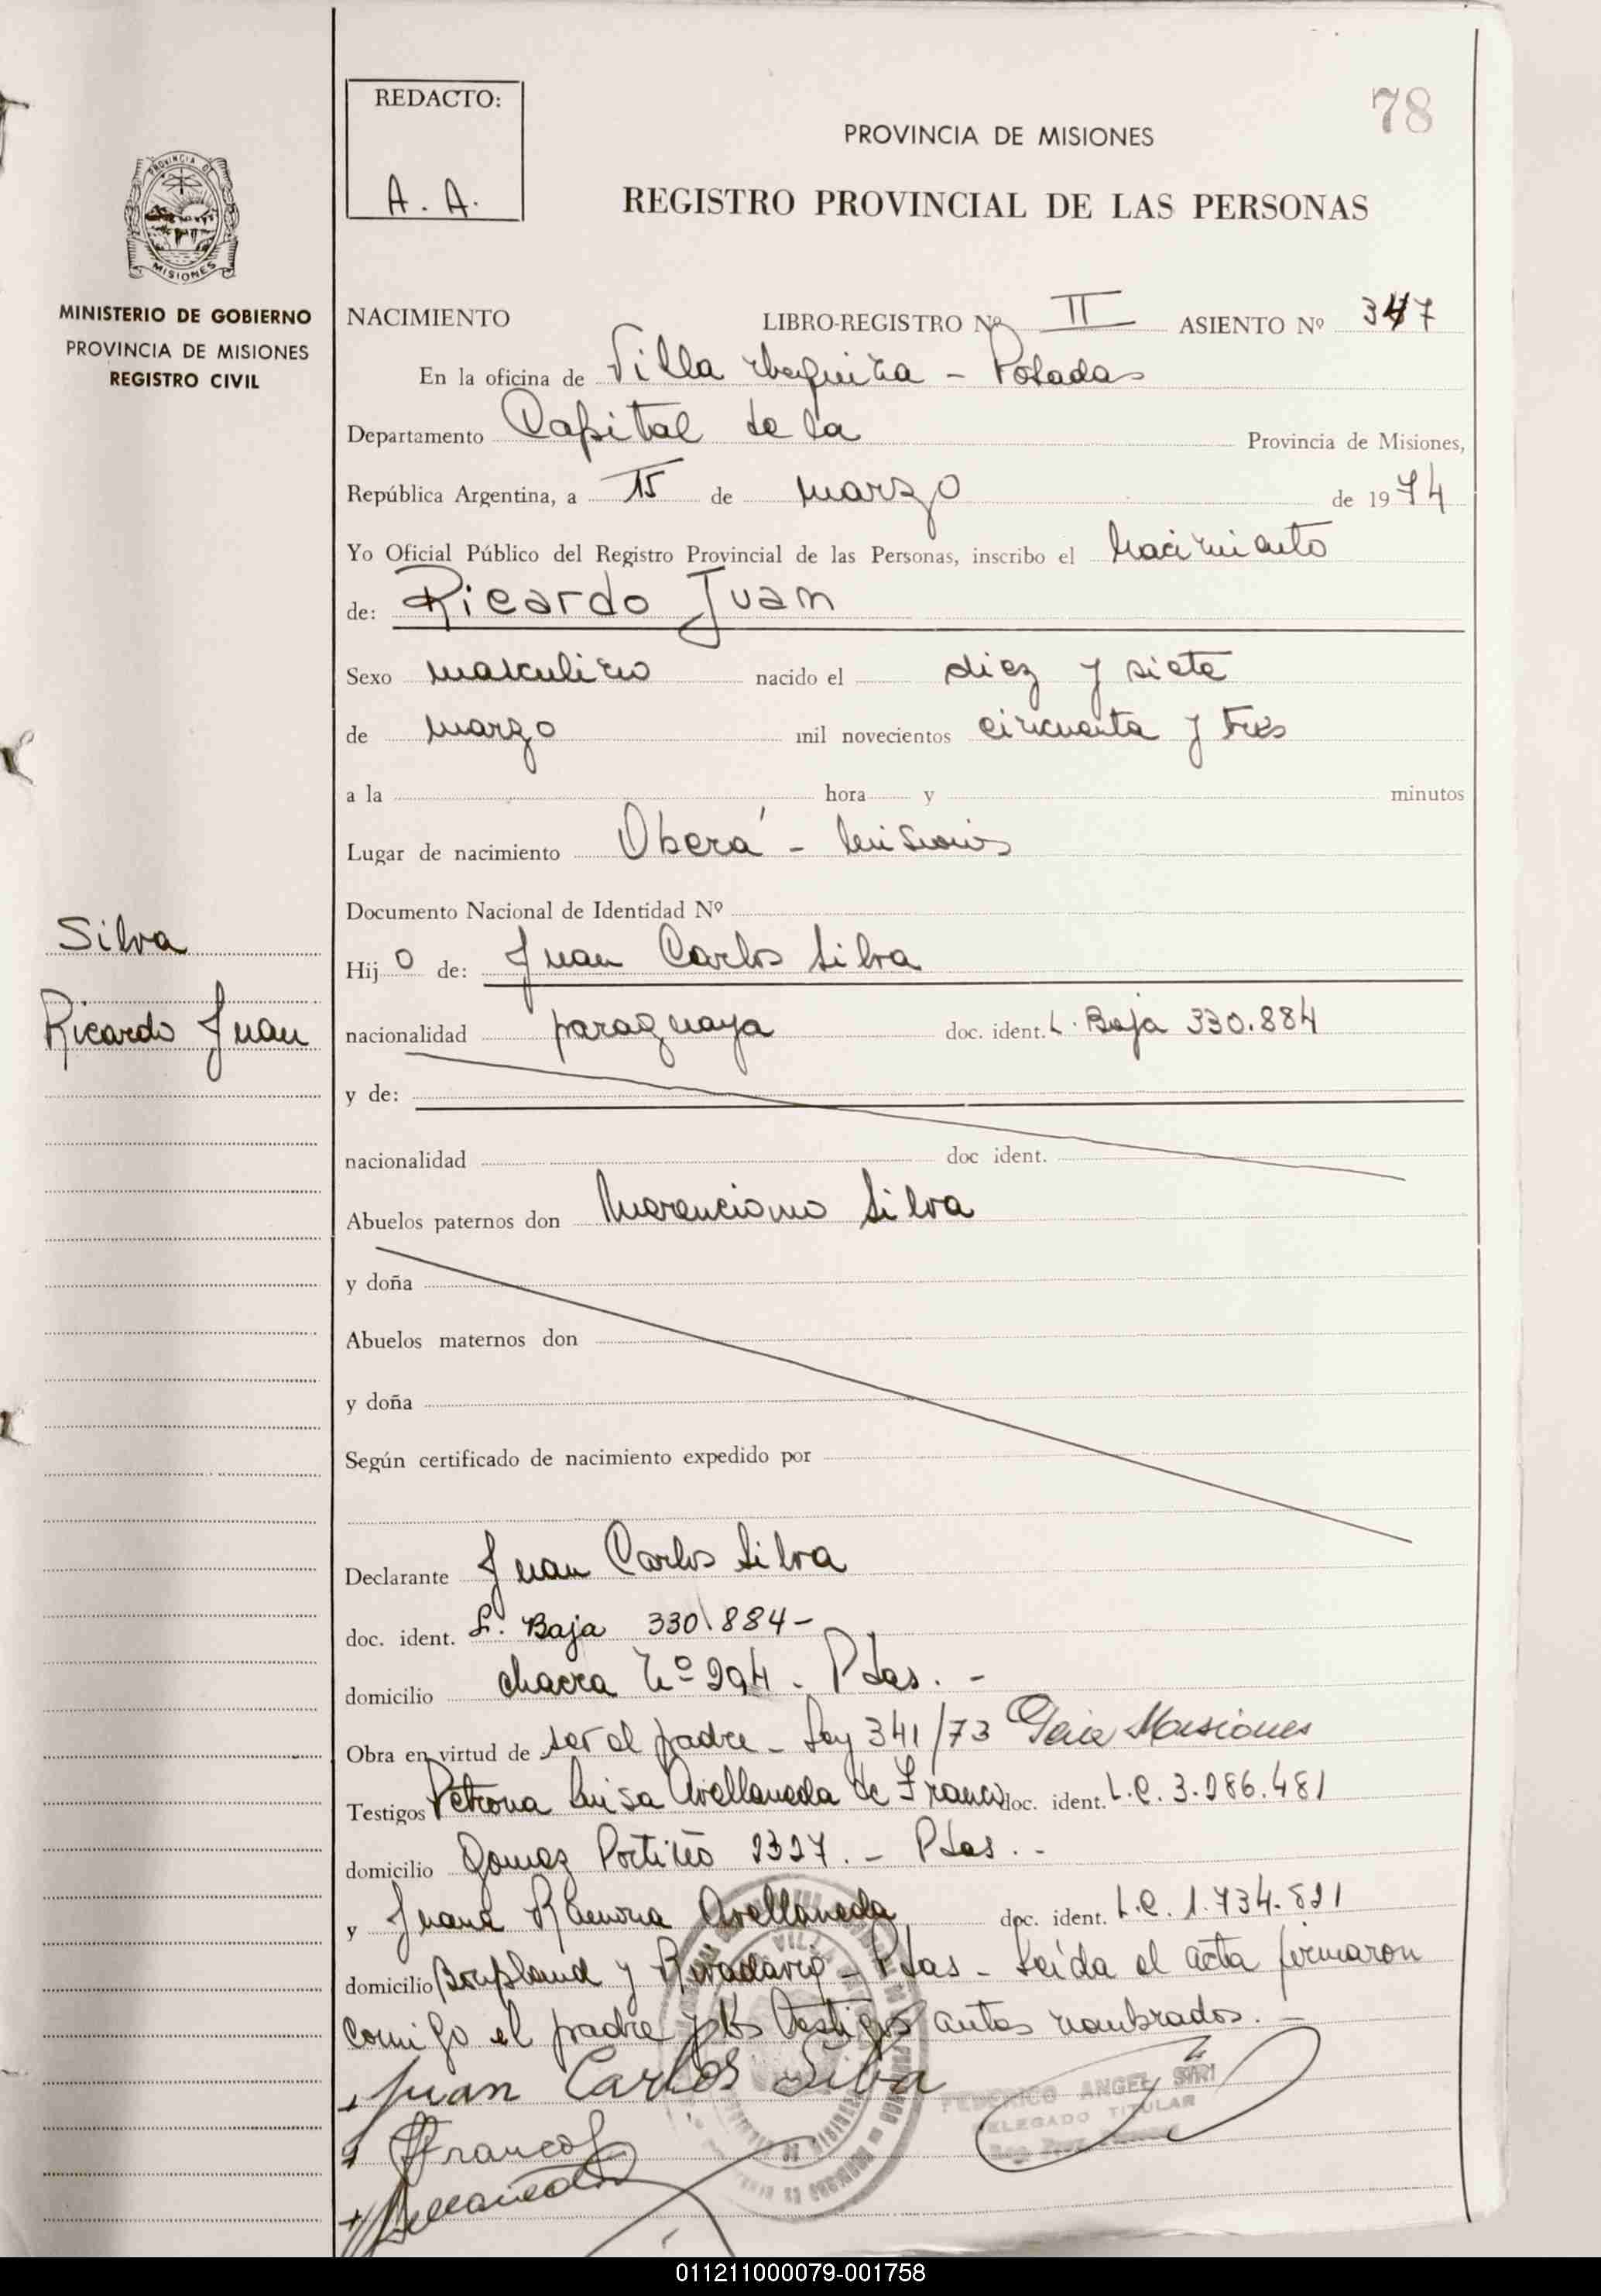 78
REDACTO:
A. A.
PROVINCIA DE MISIONES
REGISTRO PROVINCIAL DE LAS PERSONAS
PROVINCIA DE
MISIONES
MINISTERIO DE GOBIERNO
PROVINCIA DE MISIONES
REGISTRO CIVIL
NACIMIENTO LIBRO-REGISTRO Nº II ASIENTO Nº 347
En la oficina de Villa - Posadas
Departamento Capital de la Provincia de Misiones,
República Argentina, a 15 de marzo de 1974
Yo Oficial Público del Registro Provincial de las Personas, inscribo el nacimiento
de: Ricardo Juan
Sexo masculino nacido el diez y siete
de marzo mil novecientos cincuenta y tres
a la hora y minutos
Lugar de nacimiento Oberá - Misiones
Documento Nacional de Identidad Nº
Silva
Ricardo Juan
Hijo de: Juan Carlos Silva
nacionalidad paraguaya doc. ident. L. Baja 330.884
y de:
nacionalidad doc ident.
Abuelos paternos don Silva
y doña
Abuelos maternos don
y doña
Según certificado de nacimiento expedido por
Declarante Juan Carlos Silva
doc. ident. L. Baja 330.884-
domicilio chacra Nº 294. Pdas. -
Obra en virtud de ser el padre - Ley 341/73 Pcia Misiones
Testigos Petrona Luisa Avellaneda de Franco doc. ident. L.C. 3.286.481
domicilio Gomez Portiño 2327. - Pdas. -
y Juana Avellaneda doc. ident. L.C. 1.734.821
domicilio Bonpland y Rivadavia - Pdas - Leída el acta firmaron
comigo el padre y los testigos antes nombrados. -
Juan Carlos Silva
FEDERICO ANGEL SIRI
DELEGADO TITULAR
Franco
Avellaneda
011211000079-001758